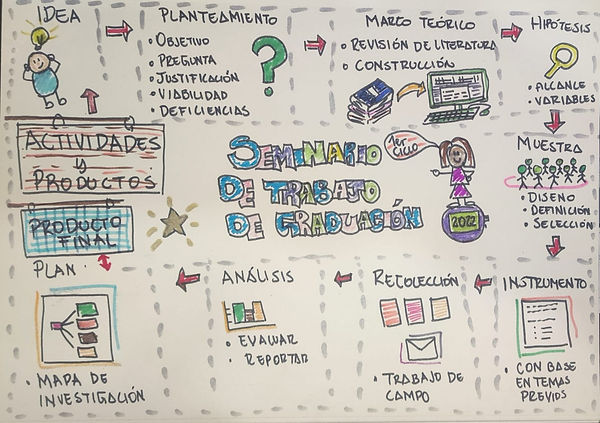 IDEA
PLANTEAMIENTO
• OBJETIVO
• PREGUNTA
• JUSTIFICACIÓN
• VIABILIDAD
• DEFICIENCIAS
MARCO TEÓRICO
• REVISIÓN DE LITERATURA
• CONSTRUCCIÓN
HIPÓTESIS
• ALCANCE
• VARIABLES
ACTIVIDADES
Y
PRODUCTOS
PRODUCTO
FINAL
SEMINARIO
DE TRABAJO
DE GRADUACIÓN
1ER
CICLO
2022
MUESTRA
• DISENO
• DEFINICIÓN
• SELECCIÓN
PLAN
• MAPA DE
INVESTIGACIÓN
ANÁLISIS
• EVALUAR
• REPORTAR
RECOLECCIÓN
• TRABAJO DE
CAMPO
INSTRUMENTO
• CON BASE
EN TEMAS
PREVIOS